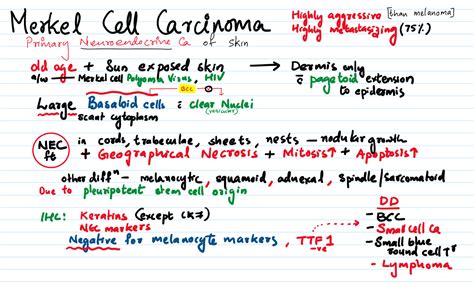 Merkel Cell Carcinoma
Highly aggressive [than melanoma]
Highly metastasizing (75%)
Primary Neuroendocrine Ca of skin
old age + Sun exposed skin → Dermis only
a/w → Merkel cell Polyoma Virus, HIV
c̄ pagetoid extension
to epidermis
BCC
Large Basaloid cells c̄ clear Nuclei
(vesicular)
scant cytoplasm
NEC
ft
in cords, trabeculae, sheets, nests — nodular growth
+ Geographical Necrosis + Mitosis↑ + Apoptosis↑
other diffⁿ — melanocytic, squamoid, adnexal, spindle/sarcomatoid
Due to pleuripotent stem cell origin
IHC: Keratins (except CK7)
NEC markers
Negative for melanocyte markers, TTF1
-ve
DD
- BCC
- Small cell Ca
- Small blue
round cell Tr
- Lymphoma